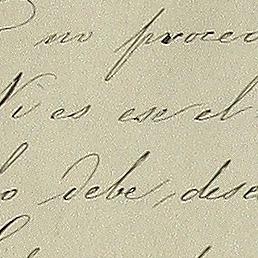 no proced
Ni es ese el
lo debe, dese